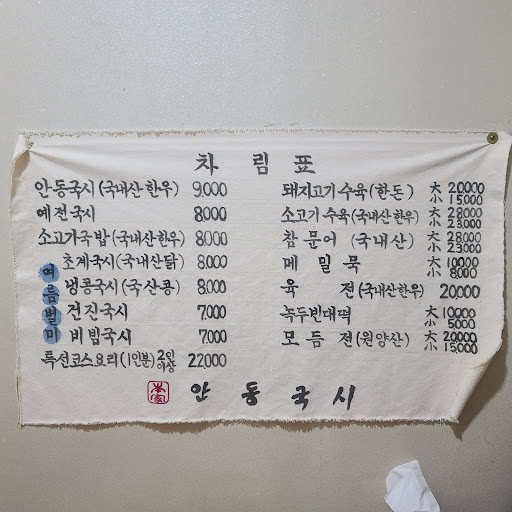 차림표
안동국시(국내산한우) 9,000
예전국시 8,000
소고기국밥(국내산한우) 8,000
여름별미
초계국시(국내산닭) 8,000
냉콩국시(국산콩) 8,000
건진국시 7,000
비빔국시 7,000
특선코스요리(1인분)2인이상 22,000
돼지고기수육(한돈) 大 20,000
小 15,000
소고기수육(국내산한우) 大 28,000
小 23,000
참문어(국내산) 大 28,000
小 23,000
메밀묵 大 10,000
小 8,000
육전(국내산한우) 20,000
녹두빈대떡 大 10,000
小 5,000
모듬전(원양산) 大 20,000
小 15,000
안동국시